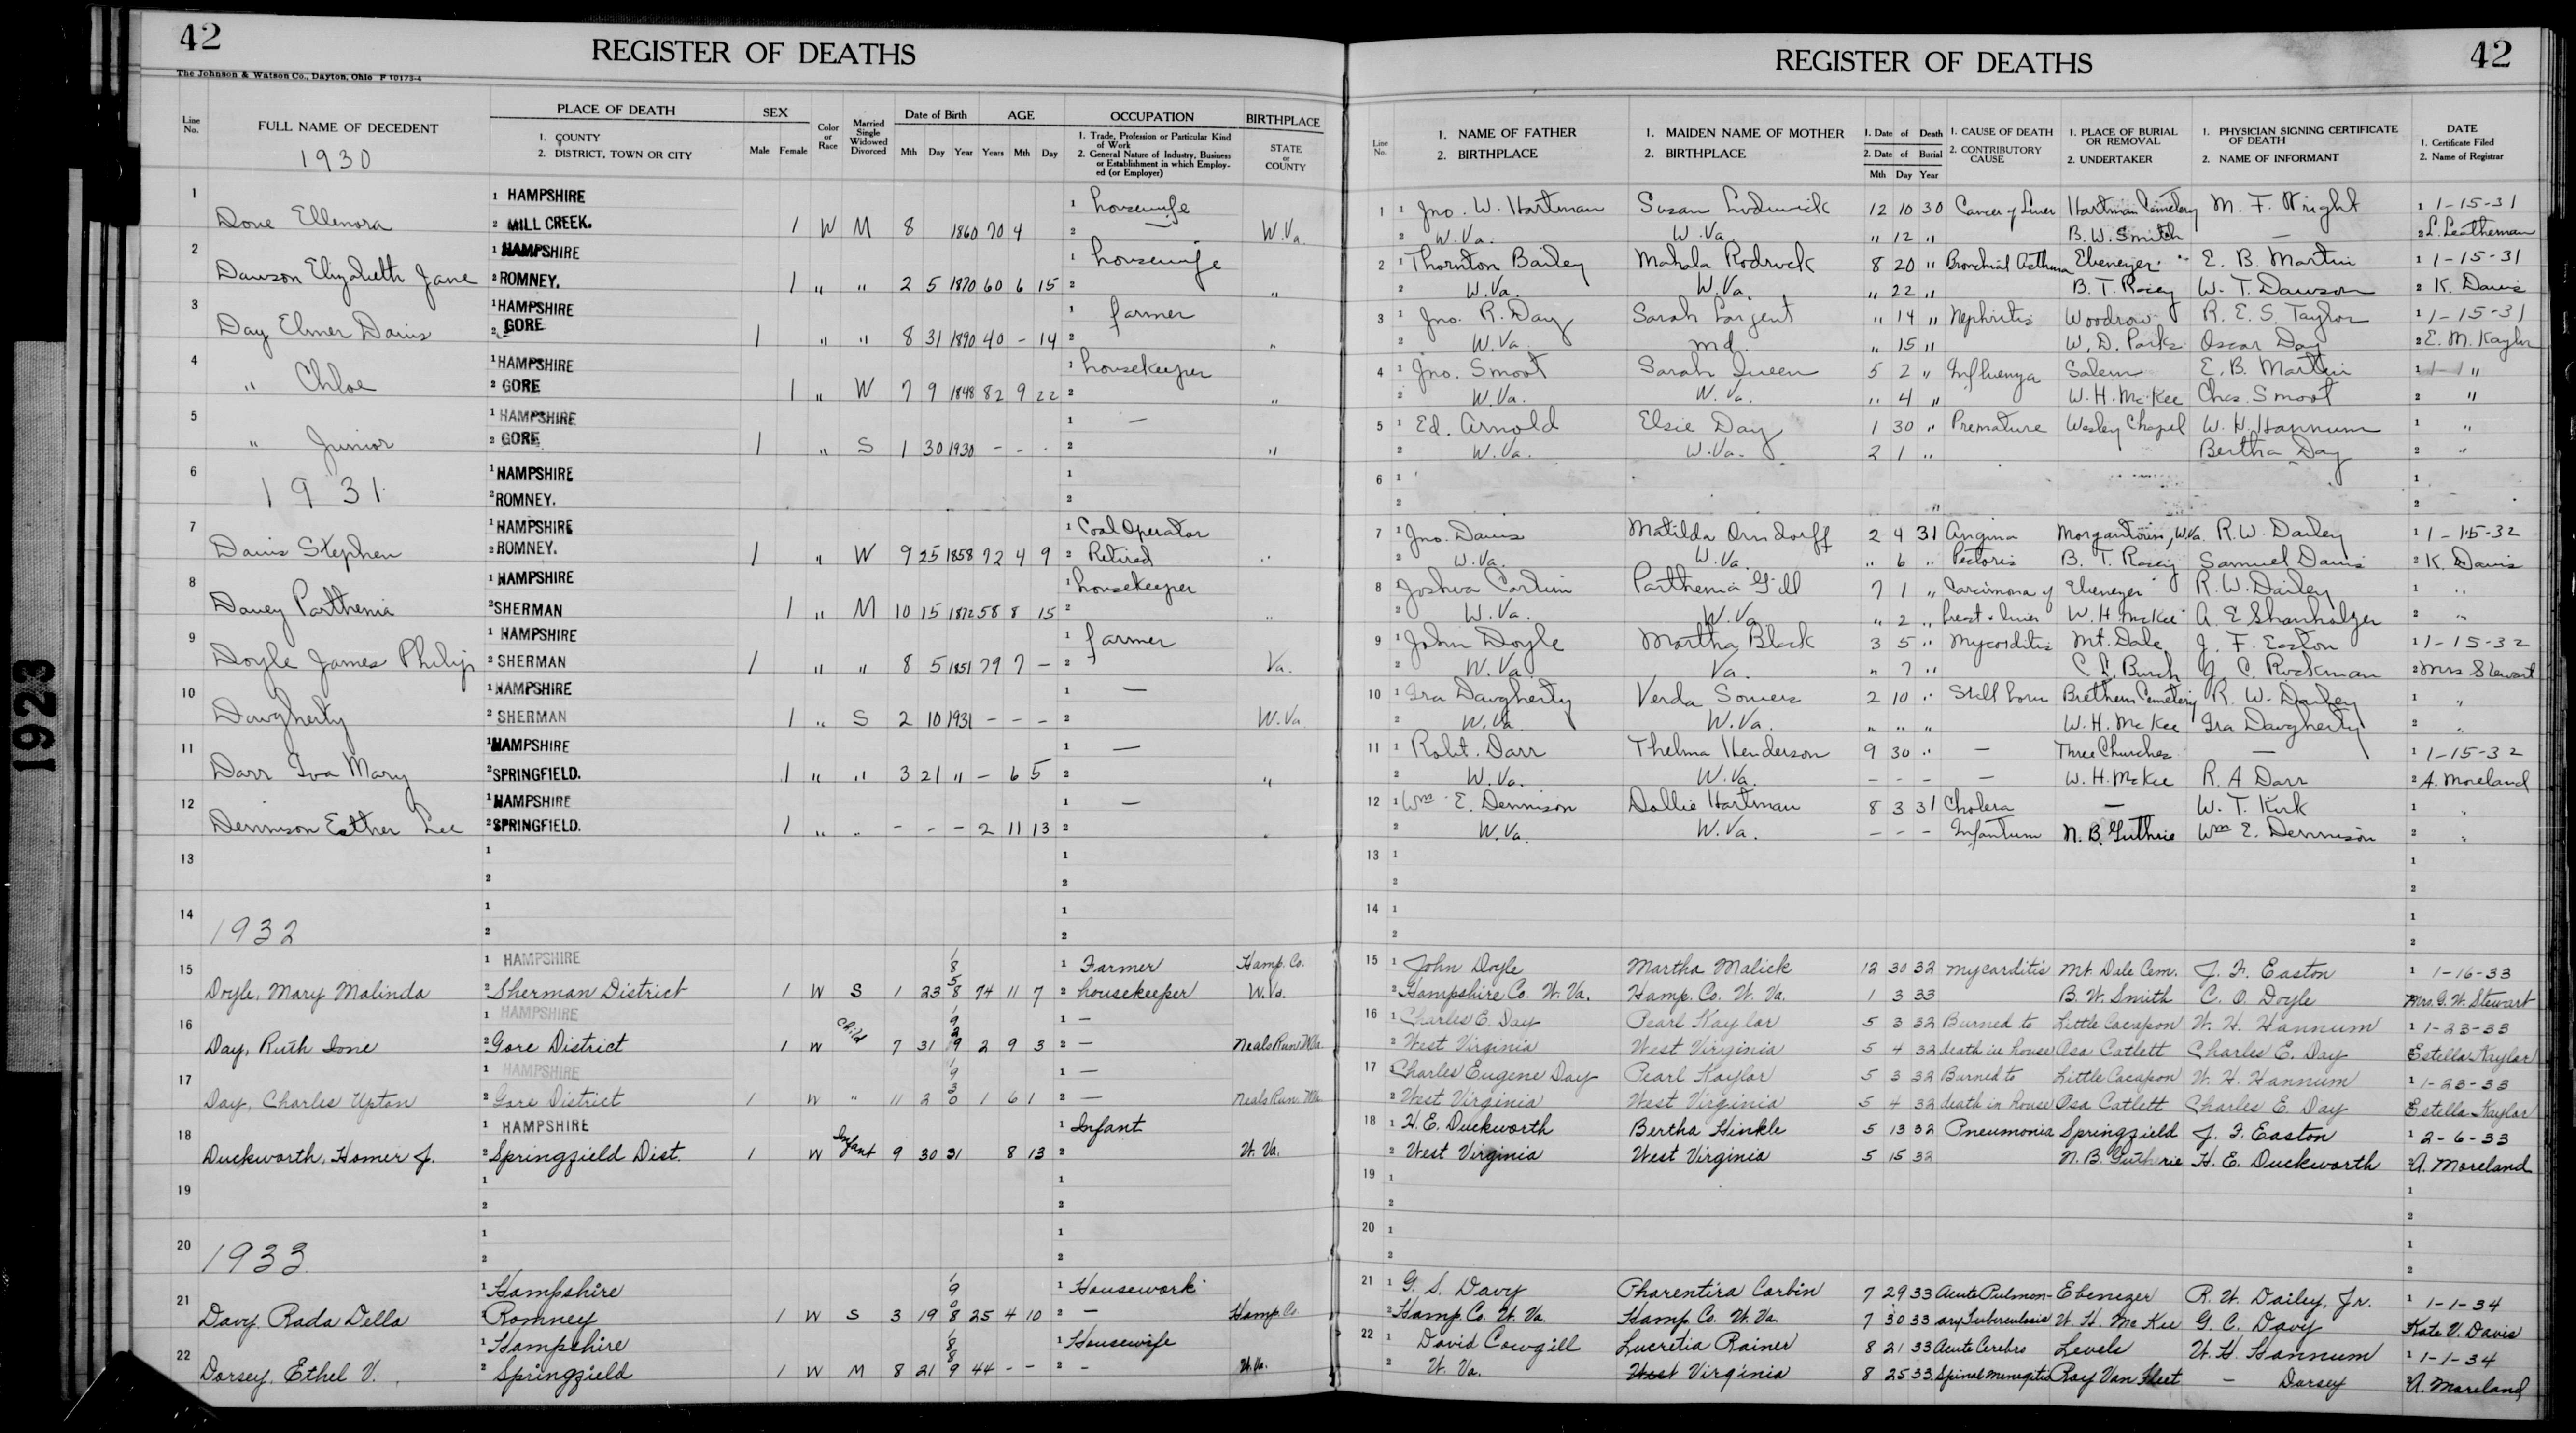 42
REGISTER OF DEATHS
The Johnson & Watson Co., Dayton, Ohio F 10173-4
Line No.
FULL NAME OF DECEDENT
1930
PLACE OF DEATH
1. COUNTY
2. DISTRICT, TOWN OR CITY
SEX
Male Female
Color or Race
Married Single Widowed Divorced
Date of Birth
Mth Day Year
AGE
Years Mth Day
OCCUPATION
1. Trade, Profession or Particular Kind of Work
2. General Nature of Industry, Business or Establishment in which Employed (or Employer)
BIRTHPLACE
STATE or COUNTY
1 1 HAMPSHIRE 1 housewife
Dove Ellenora 2 MILL CREEK. 1 W M 8 1860 70 4 2 — W.Va.
2 1 HAMPSHIRE 1 housewife
Dawson Elizabeth Jane 2 ROMNEY. 1 " " 2 5 1870 60 6 15 2 "
3 1 HAMPSHIRE 1 farmer
Day Elmer Davis 2 GORE 1 " " 8 31 1890 40 - 14 2 "
4 1 HAMPSHIRE 1 housekeeper
" Chloe 2 GORE 1 " W 7 9 1848 82 9 22 2 "
5 1 HAMPSHIRE 1 —
" Junior 2 GORE 1 " S 1 30 1930 - - - 2 "
6 1 HAMPSHIRE 1
1931 2 ROMNEY. 2
7 1 HAMPSHIRE 1 Coal Operator
Davis Stephen 2 ROMNEY. 1 " W 9 25 1858 72 4 9 2 Retired "
8 1 HAMPSHIRE 1 housekeeper
Davey Parthenia 2 SHERMAN 1 " M 10 15 1872 58 8 15 2 "
9 1 HAMPSHIRE 1 farmer
Doyle James Philip 2 SHERMAN 1 " " 8 5 1851 79 7 - 2 Va.
10 1 HAMPSHIRE 1 —
Daugherty 2 SHERMAN 1 " S 2 10 1931 - - - 2 W.Va
11 1 HAMPSHIRE 1 —
Darr Iva Mary 2 SPRINGFIELD. 1 " " 3 21 " - 6 5 2 "
12 1 HAMPSHIRE 1 —
Dennison Esther Lee 2 SPRINGFIELD. 1 " " - - - 2 11 13 2 "
13 1 1
2 2
14 1 1
1932 2 2
15 1 HAMPSHIRE 1 Farmer Hamp. Co.
Doyle, Mary Malinda 2 Sherman District 1 W S 1 23 1858 74 11 7 2 housekeeper W.Va.
16 1 HAMPSHIRE 1 —
Day, Ruth Ione 2 Gore District 1 W Child 7 31 1929 2 9 3 2 — Neals Run W.Va.
17 1 HAMPSHIRE 1 —
Day, Charles Upton 2 Gore District 1 W " 11 2 1930 1 6 1 2 — Neals Run W.Va.
18 1 HAMPSHIRE 1 Infant
Duckworth, Homer J. 2 Springfield Dist. 1 W Infant 9 30 31 8 13 2 W. Va.
19 1 1
2 2
20 1 1
1933 2 2
21 1 Hampshire 1 Housework
Davy, Rada Della 2 Romney 1 W S 3 19 1908 25 4 10 2 — Hamp. Co.
22 1 Hampshire 1 Housewife
Dorsey, Ethel V. 2 Springfield 1 W M 8 21 1889 44 - - 2 - W.Va.
1923
REGISTER OF DEATHS
42
Line No.
1. NAME OF FATHER
2. BIRTHPLACE
1. MAIDEN NAME OF MOTHER
2. BIRTHPLACE
1. Date of Death
2. Date of Burial
Mth Day Year
1. CAUSE OF DEATH
2. CONTRIBUTORY CAUSE
1. PLACE OF BURIAL OR REMOVAL
2. UNDERTAKER
1. PHYSICIAN SIGNING CERTIFICATE OF DEATH
2. NAME OF INFORMANT
DATE
1. Certificate Filed
2. Name of Registrar
1 1 Jno. W. Hartman Susan Ludwick 12 10 30 Cancer of Liver Hartman Cemetery M. F. Wright 1 1-15-31
2 W.Va. W.Va " 12 " B. W. Smith — 2 L. Leatherman
2 1 Thornton Bailey Mahala Rodruck 8 20 " Bronchial Asthma Ebenezer E. B. Martin 1 1-15-31
2 W.Va. W.Va. " 22 " B. T. Racey W. T. Dawson 2 K. Davis
3 1 Jno. R. Day Sarah Largent " 14 " Nephritis Woodrow R. E. S. Taylor 1 1-15-31
2 W.Va. Md. " 15 " W. D. Parks Oscar Day 2 E. M. Kaylor
4 1 Jno. Smoot Sarah Queen 5 2 " Influenza Salem E. B. Martin 1 1-1 "
2 W.Va. W.Va. " 4 " W. H. McKee Chas. Smoot 2 "
5 1 Ed. Arnold Elsie Day 1 30 " Premature Wesley Chapel W. H. Hannum 1 "
2 W.Va. W.Va. 2 1 " Bertha Day 2 "
6 1 1
2 " 2
7 1 Jno. Davis Matilda Orndorff 2 4 31 Angina Morgantown, W.Va. R. W. Dailey 1 1-15-32
2 W.Va. W.Va. " 6 " Pectoris B. T. Racey Samuel Davis 2 K. Davis
8 1 Joshua Corbin Parthenia Gill 7 1 " Carcinoma of Ebenezer R. W. Dailey 1 "
2 W.Va. W.Va. " 2 " breast & liver W. H. McKee A. E Shanholtzer 2 "
9 1 John Doyle Martha Black 3 5 " Mycorditis Mt. Dale J. F. Easton 1 1-15-32
2 W.Va. Va. " 7 " C. L. Burch J. C. Ruckman 2 Mrs Stewart
10 1 Ira Daugherty Verda Somers 2 10 " Still born Brethern Cemetery R. W. Dailey 1 "
2 W.Va. W.Va. " " " W. H. McKee Ira Daugherty 2 "
11 1 Robt. Darr Thelma Henderson 9 30 " — Three Churches — 1 1-15-32
2 W.Va. W.Va. - - - — W. H. McKee R. A Darr 2 A. Moreland
12 1 Wm E. Dennison Dollie Hartman 8 3 31 Cholera — W. T. Kirk 1 "
2 W.Va. W.Va. - - - Infantum N. B. Guthrie Wm E. Dennison 2 "
13 1 1
2 2
14 1 1
2 2
15 1 John Doyle Martha Malick 12 30 32 Mycarditis Mt. Dale Cem. J. F. Easton 1 1-16-33
2 Hampshire Co. W. Va. Hamp. Co. W. Va. 1 3 33 B. W. Smith C. O. Doyle Mrs. G. W. Stewart
16 1 Charles E. Day Pearl Kaylor 5 3 32 Burned to Little Cacapon W. H. Hannum 1 1-23-33
2 West Virginia West Virginia 5 4 32 death in house Asa Catlett Charles E. Day Estella Kaylor
17 1 Charles Eugene Day Pearl Kaylor 5 3 32 Burned to Little Cacapon W. H. Hannum 1 1-23-33
2 West Virginia West Virginia 5 4 32 death in house Asa Catlett Charles E. Day Estella Kaylor
18 1 H. E. Duckworth Bertha Hinkle 5 13 32 Pneumonia Springfield J. F. Easton 1 2-6-33
2 West Virginia West Virginia 5 15 32 N. B. Guthrie H. E. Duckworth 2 A. Moreland
19 1 1
2 2
20 1 1
2 2
21 1 G. S. Davy Pharentira Corbin 7 29 33 Acute Pulmon- Ebenezer R. W. Dailey, Jr. 1 1-1-34
2 Hamp. Co. W. Va. Hamp. Co. W. Va. 7 30 33 ary Tuberculosis W. H. McKee G. C. Davy Kate V. Davis
22 1 David Cowgill Lucretia Rainer 8 21 33 Acute Cerebro Levels W. H. Hannum 1 1-1-34
2 W. Va. West Virginia 8 25 33 Spinal Menegitis Ray Van Fleet - Dorsey 2 A. Moreland